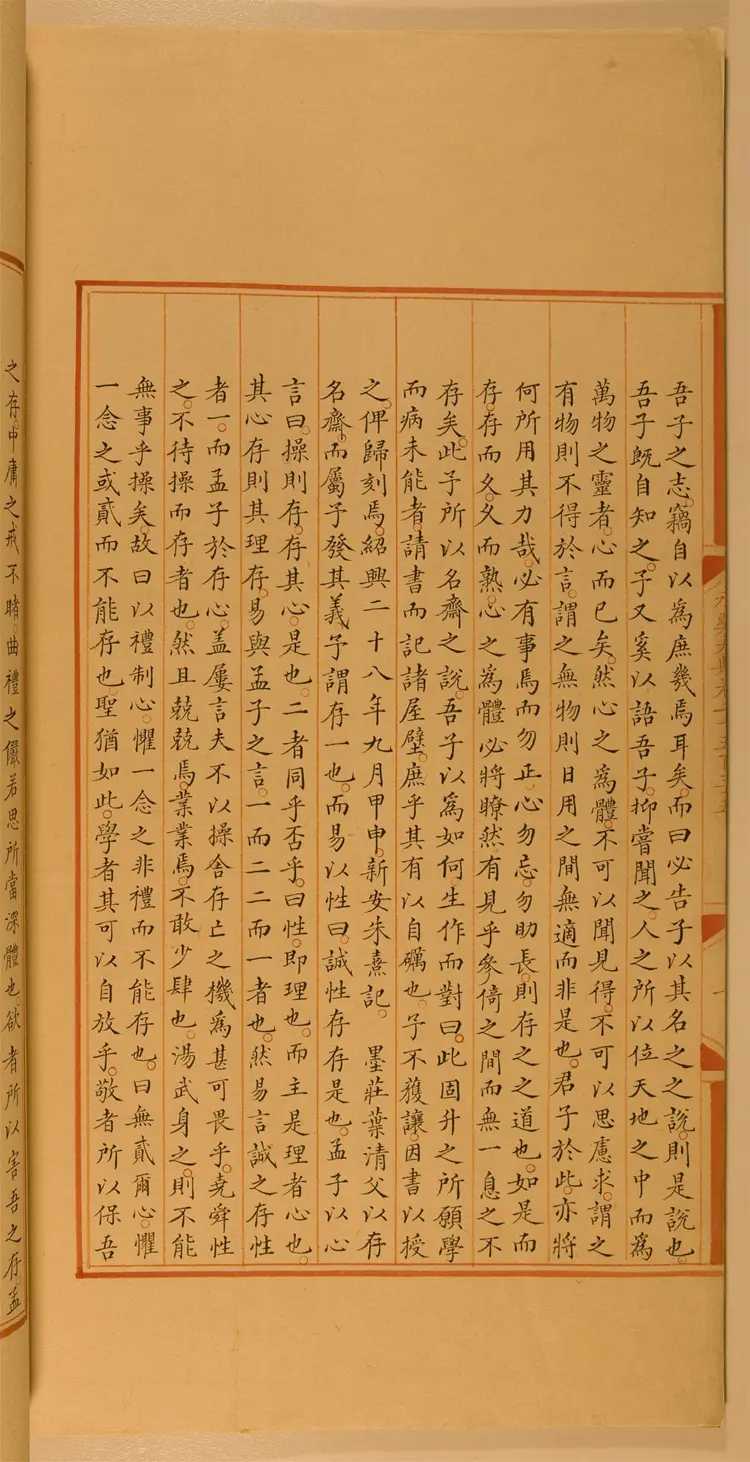 吾子之志。竊自以為庶幾焉耳矣。而曰必告子以其名之之說。則是說也。
吾子既自知之。子又奚以語吾子。抑嘗聞之。人之所以位天地之中而為
萬物之靈者。心而已矣。然心之為體。不可以聞見得。不可以思慮求。謂之
有物則不得於言。謂之無物則日用之間無適而非是也。君子於此。亦將
何所用其力哉。必有事焉而勿正。心勿忘。勿助長。則存之之道也。如是而
存。存而久。久而熟。心之為體必將瞭然有見乎參倚之間而無一息之不
存矣。此子所以名齋之說。吾子以為如何生作而對曰。此固升之所願學
而病未能者。請書而記諸屋壁。庶乎其有以自礪也。子不獲讓。因書以授
之。俾歸刻焉。紹興二十八年九月甲申。新安朱熹記。 墨莊葉清父以存
名齋。而屬子發其義子謂存一也。而易以性曰。誠性存存是也。孟子以心
言曰。操則存。存其心。是也。二者同乎否乎。曰性。即理也。而主是理者心也。
其心存則其理存。易與孟子之言。一而二二而一者也。然易言誠之存性
者一。而孟子於存心。蓋屢言夫不以操舍存亡之機為甚可畏乎。堯舜性
之。不待操而存者也。然且兢兢焉。業業焉。不敢少肆也。湯武身之。則不能
無事乎操矣。故曰以禮制心。懼一念之非禮而不能存也。曰無貳爾心。懼
一念之或貳而不能存也。聖猶如此。學者其可以自放乎。敬者所以保吾
之存。中庸之戒不睹。曲禮之儼若思所當深體也。欲者所以害吾之存。孟